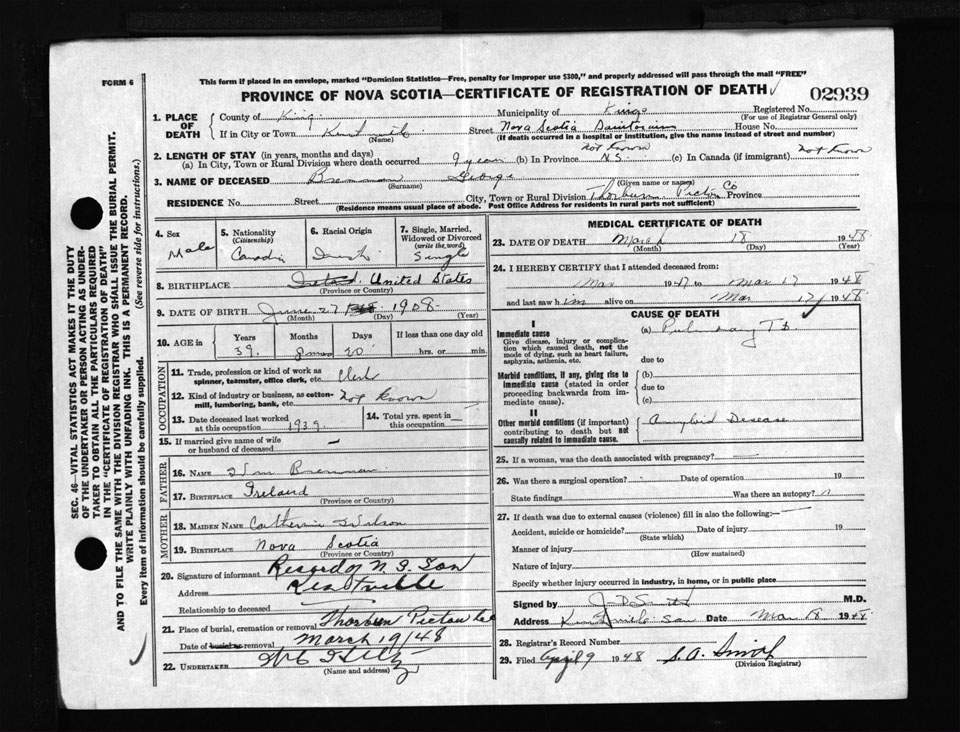 FORM 6
This form if placed in an envelope, marked "Dominion Statistics—Free, penalty for improper use $300," and properly addressed will pass through the mail "FREE"
PROVINCE OF NOVA SCOTIA—CERTIFICATE OF REGISTRATION OF DEATH
02939
SEC. 46—VITAL STATISTICS ACT MAKES IT THE DUTY
OF THE UNDERTAKER OR PERSON ACTING AS UNDER-
TAKER TO OBTAIN ALL THE PARTICULARS REQUIRED
IN THE "CERTIFICATE OF REGISTRATION OF DEATH"
AND TO FILE THE SAME WITH THE DIVISION REGISTRAR WHO SHALL ISSUE THE BURIAL PERMIT.
WRITE PLAINLY WITH UNFADING INK. THIS IS A PERMANENT RECORD.
Every item of Information should be carefully supplied. (See reverse side for instructions.)
1. PLACE OF DEATH
County of Kings Municipality of Kings Registered No.
(For use of Registrar General only)
If in City or Town Kentville Street Nova Scotia Sanitorium House No.
(Name) (If death occurred in a hospital or institution, give the name instead of street and number)
2. LENGTH OF STAY (in years, months and days)
(a) In City, Town or Rural Division where death occurred 1 year (b) In Province not known N.S. (c) In Canada (if immigrant) not known
3. NAME OF DECEASED Brennan George
(Surname) (Given name or names)
RESIDENCE No. Street City, Town or Rural Division Thorburn Pictou Co Province
(Residence means usual place of abode. Post Office Address for residents in rural parts not sufficient)
4. Sex Male
5. Nationality (Citizenship) Canadian
6. Racial Origin Irish
7. Single, Married, Widowed or Divorced (write the word) Single
8. BIRTHPLACE United States
(Province or Country)
9. DATE OF BIRTH June 27 1908
(Month) (Day) (Year)
10. AGE in Years 39 Months 8 mos Days 20 If less than one day old hrs. or min.
OCCUPATION
11. Trade, profession or kind of work as spinner, teamster, office clerk, etc. Clerk
12. Kind of industry or business, as cotton-mill, lumbering, bank, etc. Not known
13. Date deceased last worked at this occupation 1939.
14. Total yrs. spent in this occupation
15. If married give name of wife or husband of deceased —
FATHER
16. NAME Brennan
17. BIRTHPLACE Ireland
(Province or Country)
MOTHER
18. MAIDEN NAME Catherine Wilson
19. BIRTHPLACE Nova Scotia
(Province or Country)
20. Signature of informant Record of N.S. San
Address Kentville
Relationship to deceased
21. Place of burial, cremation or removal Thorburn Pictou Co
Date of burial or removal March 19/48
22. UNDERTAKER
(Name and address)
MEDICAL CERTIFICATE OF DEATH
23. DATE OF DEATH March 18 1948
(Month) (Day) (Year)
24. I HEREBY CERTIFY that I attended deceased from:
Mar 1947 to Mar 17 1948
and last saw him alive on Mar 17 1948
CAUSE OF DEATH
I
Immediate cause
Give disease, injury or complication which caused death, not the mode of dying, such as heart failure, asphyxia, asthenia, etc.
(a) Pulmonary T B
due to
Morbid conditions, if any, giving rise to immediate cause (stated in order proceeding backwards from immediate cause).
(b)
due to
(c)
II
Other morbid conditions (if important) contributing to death but not causally related to immediate cause.
Amyloid Disease
25. If a woman, was the death associated with pregnancy?
26. Was there a surgical operation? Date of operation 19
State findings Was there an autopsy?
27. If death was due to external causes (violence) fill in also the following:—
Accident, suicide or homicide? Date of injury 19
(State which)
Manner of injury
(How sustained)
Nature of injury
Specify whether injury occurred in industry, in home, or in public place
Signed by M.D.
Address Kentville San Date Mar 18 1948
28. Registrar's Record Number
29. Filed April 9 1948 S.A.
(Division Registrar)